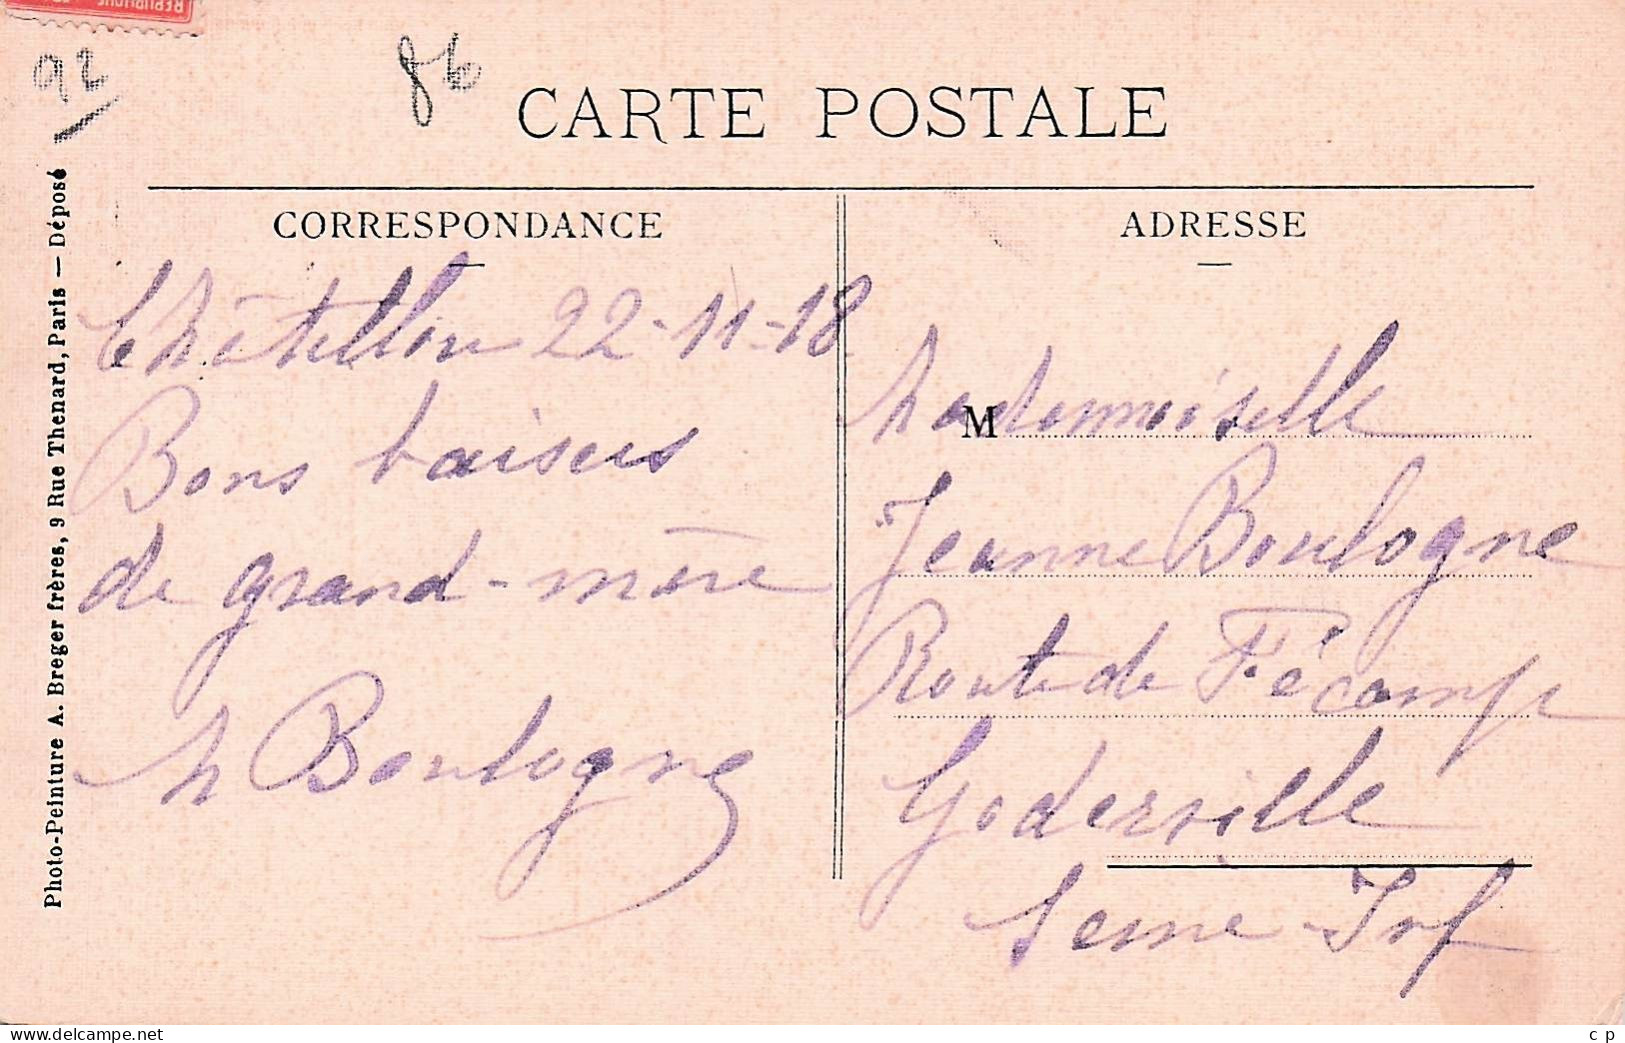 92
86
CARTE POSTALE
CORRESPONDANCE
Châtillon 22-11-18
Bons baisers
de grand-mère
M Boulogne
ADRESSE
M
Mademoiselle
Jeanne Boulogne
Route de Fécamp
Goderville
Seine Inf
Photo-Peinture A. Breger frères, 9 Rue Thenard, Paris — Déposé
www.delcampe.net
c p